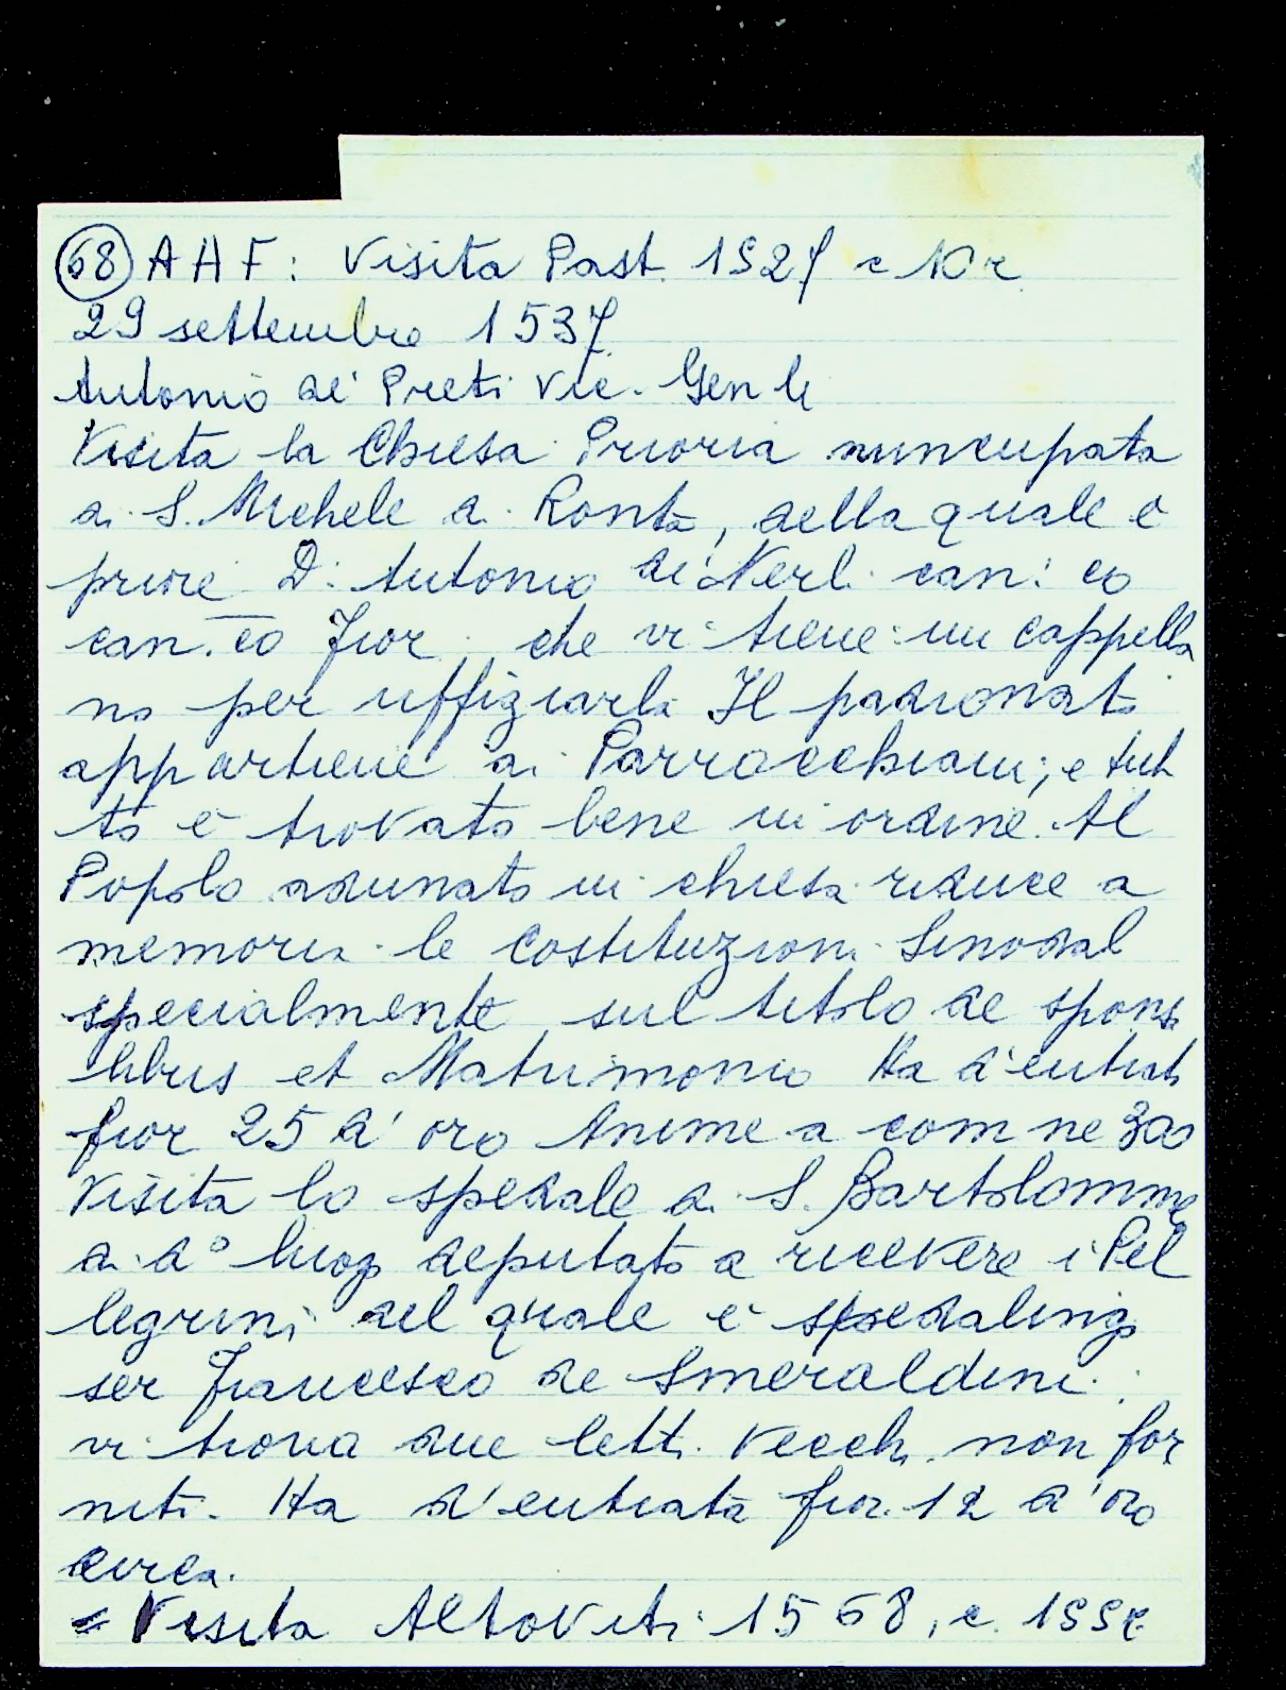 68 AHF: Visita Past. 1527 c 10 r
29 settembre 1537
Antonio de' Preti Vic. Gen le
Visita la Chiesa Prioria nuncupata
di S. Michele a Ronta, della quale è
priore D. Antonio de' Nerli can: co
can. co Fior. che vi tiene un cappella
no per uffiziarla Il padronato
appartiene ai Parrocchiani; e tut
to è trovato bene in ordine. Al
Popolo adunato in chiesa riduce a
memoria le Costituzioni Sinodal
specialmente sul titolo de spons
libus et Matrimonio Ha d'entrat
fior 25 d'oro Anime a com ne 300
Visita lo spedale di S. Bartolomme
di d° luogo deputato a ricevere i Pel
legrini del quale è spedalingo
ser Francesco de Smeraldini.
vi trova due letti vecchi non for
niti. Ha d'entrata fior. 12 d'oro
circa.
= Visita Altoviti 1568, c.